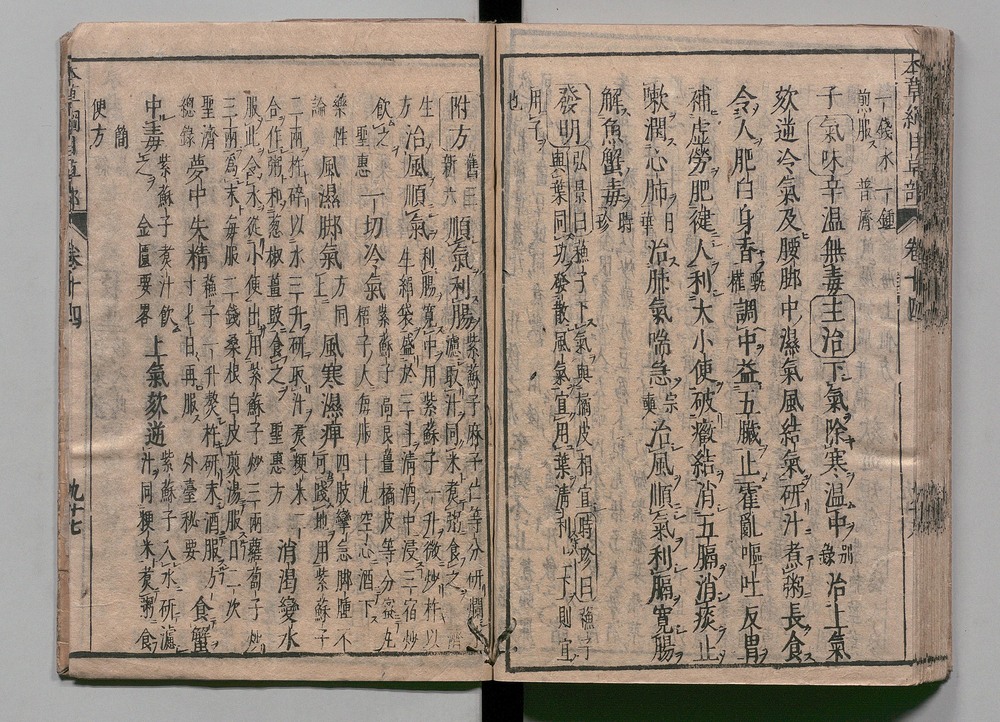 一錢水一鍾
煎服 普濟
子氣味辛温無毒主治下氣除寒温中別錄治上氣
欬逆冷氣及腰脚中濕氣風結氣研汁煮粥長食
令人肥白身香甄權調中益五臟止霍亂嘔吐反胃
補虛勞肥健人利大小便破癥結消五膈消痰止
嗽潤心肺日華治肺氣喘急宗奭治風順氣利膈寬腸
解魚蟹毒時珍
發明弘景曰蘇子下氣與橘皮相宜時珍曰蘇子
與葉同功發散風氣宜用葉清利上下則宜
用子
也
附方舊三新六順氣利腸紫蘇子麻子仁等分研爛
濾取汁同米煮粥食之濟
生方治風順氣利腸寬中用紫蘇子一升微炒杵以
生絹袋盛於三斗清酒中浸三宿少少
飲之聖惠一切冷氣紫蘇子高良薑橘皮等分蜜丸
梧子大每服十丸空心酒下
藥性論風濕脚氣方同上風寒濕痺四肢攣急脚腫不
可踐地用紫蘇子
二兩杵碎以水三升研取汁煮粳米
二合作粥和葱椒薑豉食之聖惠方消渴變水
服此令水從小便出用紫蘇子炒三兩蘿蔔子炒
三兩為末每服二錢桑根白皮煎湯服日二次
聖濟總錄夢中失精蘇子一升熬杵研末酒服方
寸七日再服外臺秘要食蟹
中毒紫蘇子煮汁飲之金匱要畧上氣欬逆紫蘇子入水研濾
汁同粳米煮粥食
簡便方
本草綱目草部 卷十四
本草綱目草部 卷十四 九十七